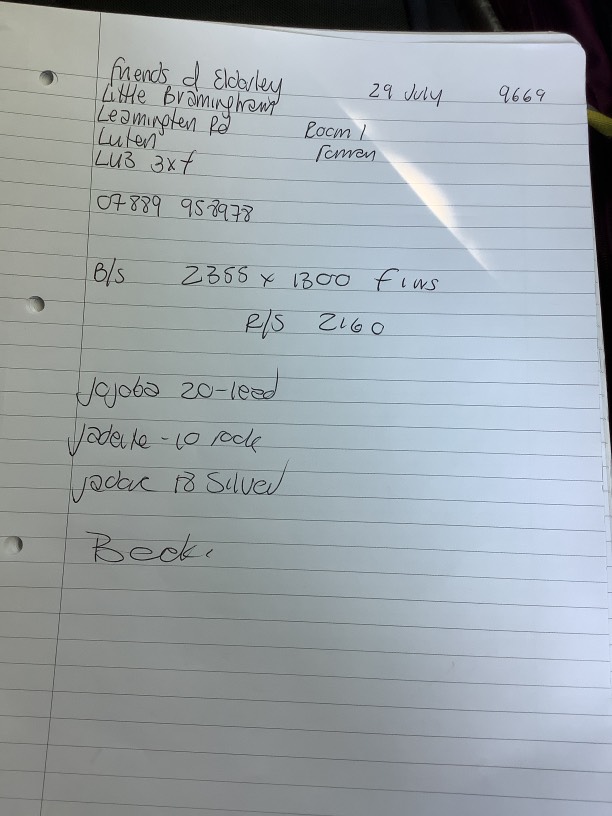 friends of Elderley 29 July 9669
Little Bramingham
Leamington Rd Room 1
Luten
LU3 3xf
07889 958978
B/S 2355 x 1300 Fins
R/S 2160
Jojoba 20-leed
- 10 rock
18 Silver